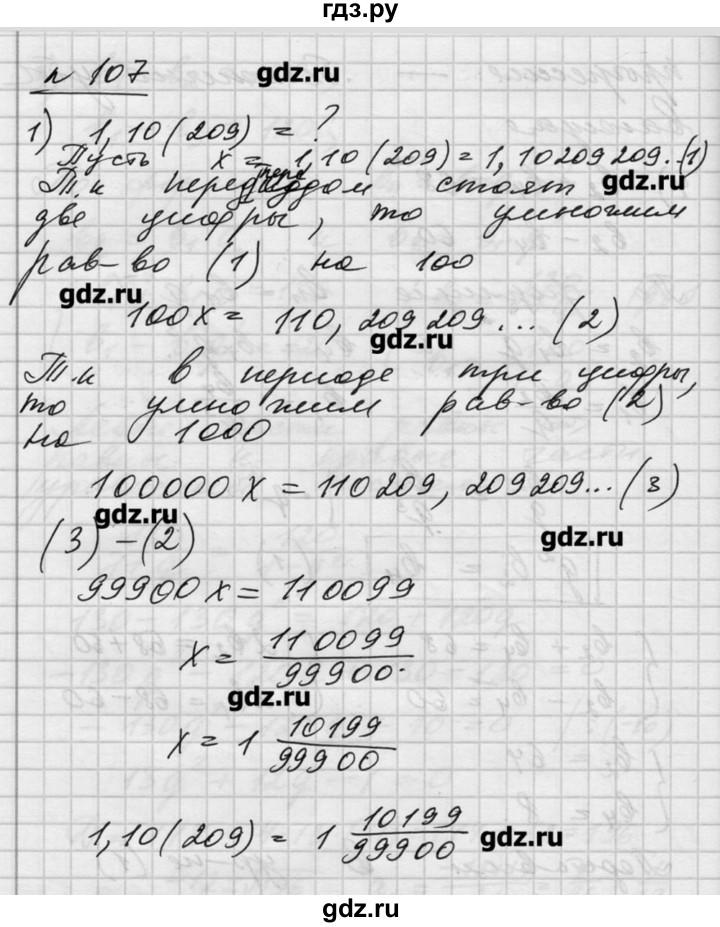 гдз.ру
№ 107
gdz.ru
1) 1,10(209) = ?
Пусть x = 1,10(209) = 1,10209209...(1)
Т.к перед периодом стоят
gdz.ru
две цифры, то умножим
рав-во (1) на 100
gdz.ru
100x = 110,209209...(2)
gdz.ru
Т.к в периоде три цифры,
то умножим рав-во (2)
на 1000
100000x = 110209,209209...(3)
gdz.ru
(3)-(2)
gdz.ru
99900x = 110099
x = 110099/99900.
gdz.ru
x = 1 10199/99900
1,10(209) = 1 10199/99900
gdz.ru
gdz.ru